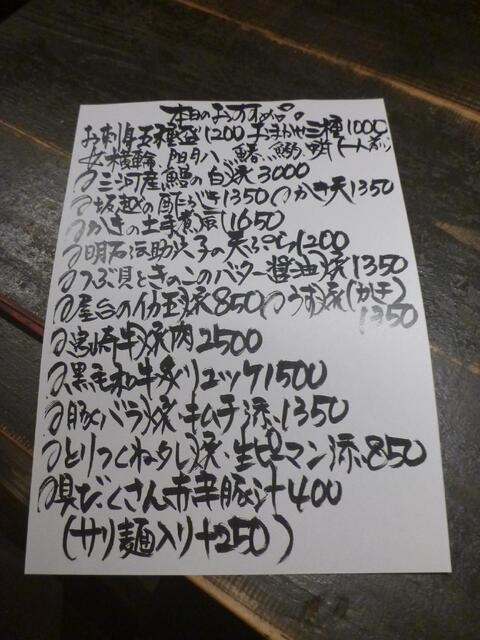 本日のおすすめ品。
お刺身五種盛1200 おまかせ三種1000
横輪、鯛 鰆、鰤 (一人盛り)
三河産鰻の白焼3000
坂越の酢がき1350 かき天1350
かきの土手煮 1650
明石 天ぷら1200
つぶ貝ときのこのバター醤油焼1350
屋台のイカ玉焼850 うす焼(かき)
1350
宮崎牛焼肉2500
黒毛和牛炙りユッケ1500
豚バラ焼、キムチ添、1350
とりつくねタレ焼、生ピーマン添、850
具だくさん赤辛豚汁400
(サリ麺入り+250)